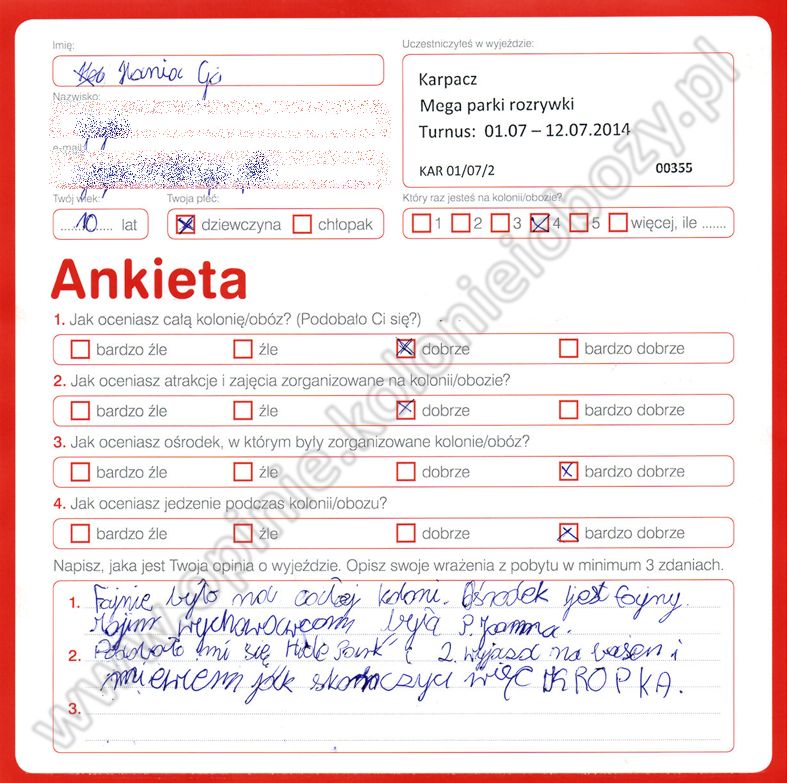 Imię:
Hania
Nazwisko:
e-mail:
Twój wiek:
10 lat
Twoja płeć:
dziewczyna chłopak
Uczestniczyłeś w wyjeździe:
Karpacz
Mega parki rozrywki
Turnus: 01.07 – 12.07.2014
KAR 01/07/2 00355
Który raz jesteś na kolonii/obozie?
1 2 3 4 5 więcej, ile .......
Ankieta
1. Jak oceniasz całą kolonię/obóz? (Podobało Ci się?)
bardzo źle źle dobrze bardzo dobrze
2. Jak oceniasz atrakcje i zajęcia zorganizowane na kolonii/obozie?
bardzo źle źle dobrze bardzo dobrze
3. Jak oceniasz ośrodek, w którym były zorganizowane kolonie/obóz?
bardzo źle źle dobrze bardzo dobrze
4. Jak oceniasz jedzenie podczas kolonii/obozu?
bardzo źle źle dobrze bardzo dobrze
Napisz, jaka jest Twoja opinia o wyjeździe. Opisz swoje wrażenia z pobytu w minimum 3 zdaniach.
1. Fajnie było na całej koloni. Ośrodek jest fajny.
Mojim wychowawcom była P. Joanna.
2. Podobało mi się i 2. wyjazd na basen i
niewiem jak skończyć więc KROPKA.
3.
www.opinie.kolonieiobozy.pl